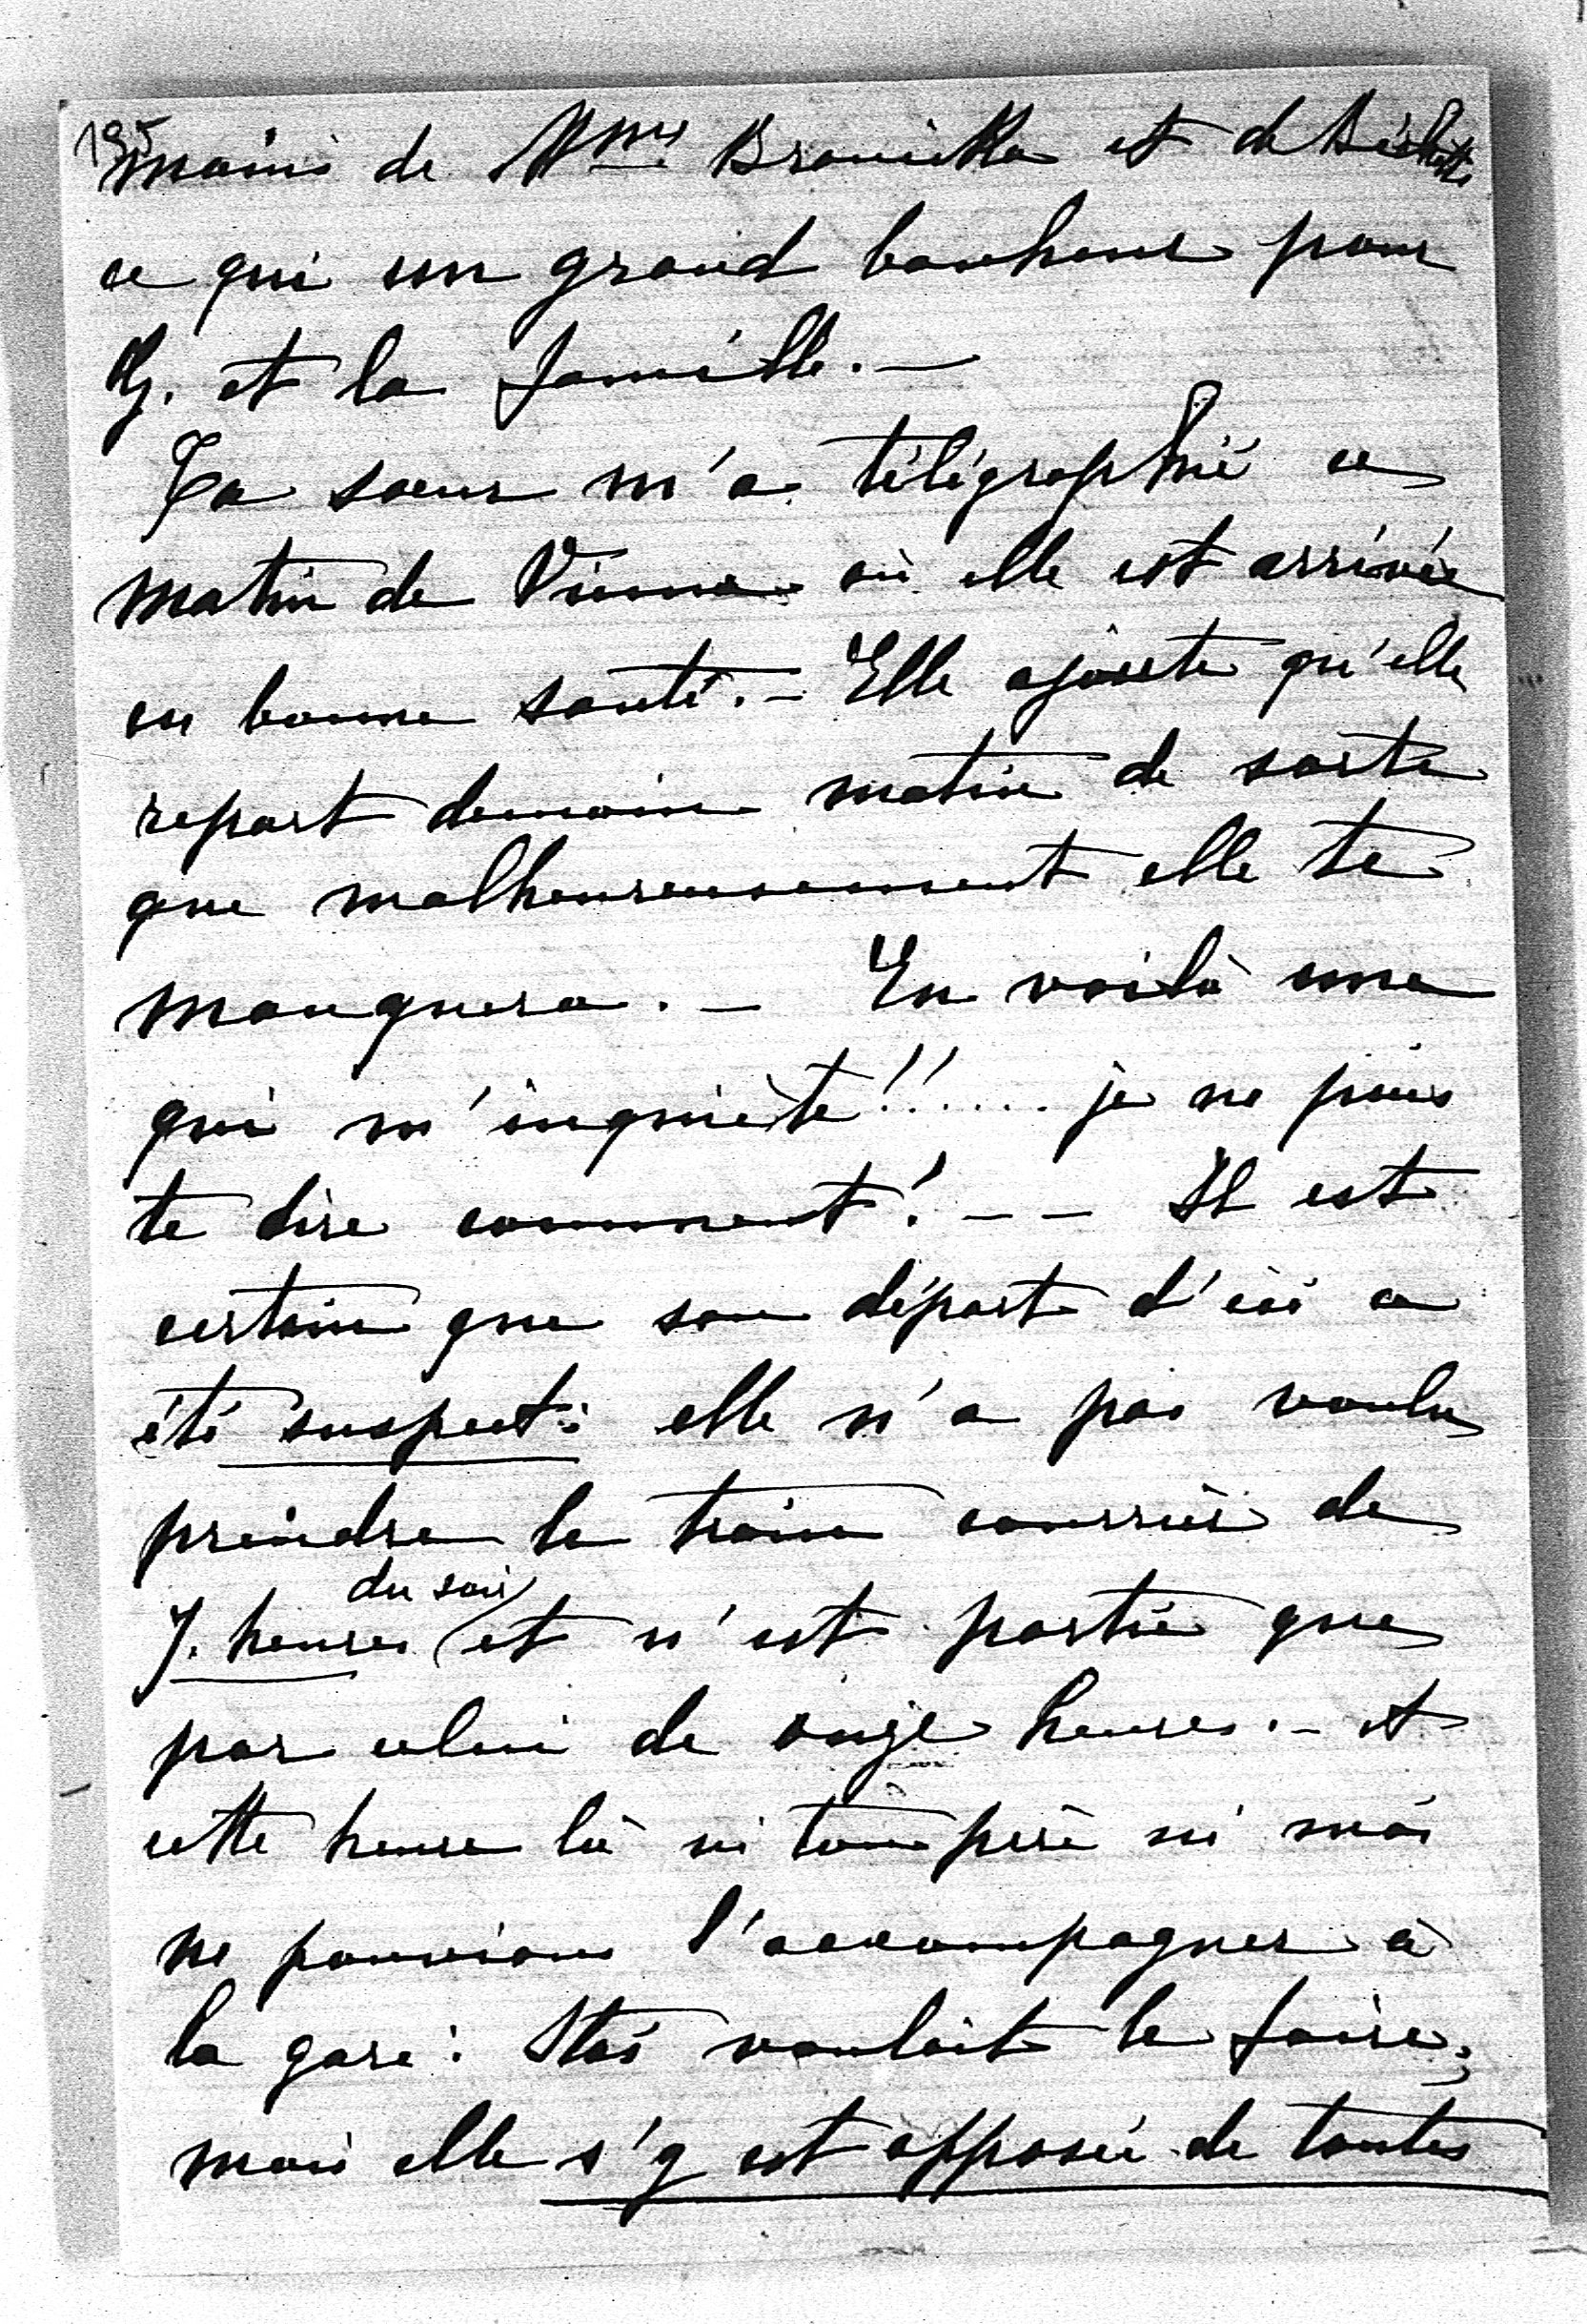 195
mains de Mme Branicka et de Bichette
ce qui un grand bonheur pour
G. et la famille. —
Ta soeur m'a télégraphié ce
matin de Vienne où elle est arrivée
en bonne santé. — Elle ajoute qu'elle
repart demain matin de sorte
que malheureusement elle te
manquera. — En voilà une
qui m'inquiète!!...... je ne puis
te dire comment! — — Il est
certain que son départ d'ici a
été suspect: elle n'a pas voulu
prendre le train courrier de
du soir
7. heures et n'est partie que
par celui de onze heures. — A
cette heure là ni ton père ni moi
ne pouvions l'accompagner à
la gare: Staś voulait le faire;
mais elle s'y est opposée de toutes